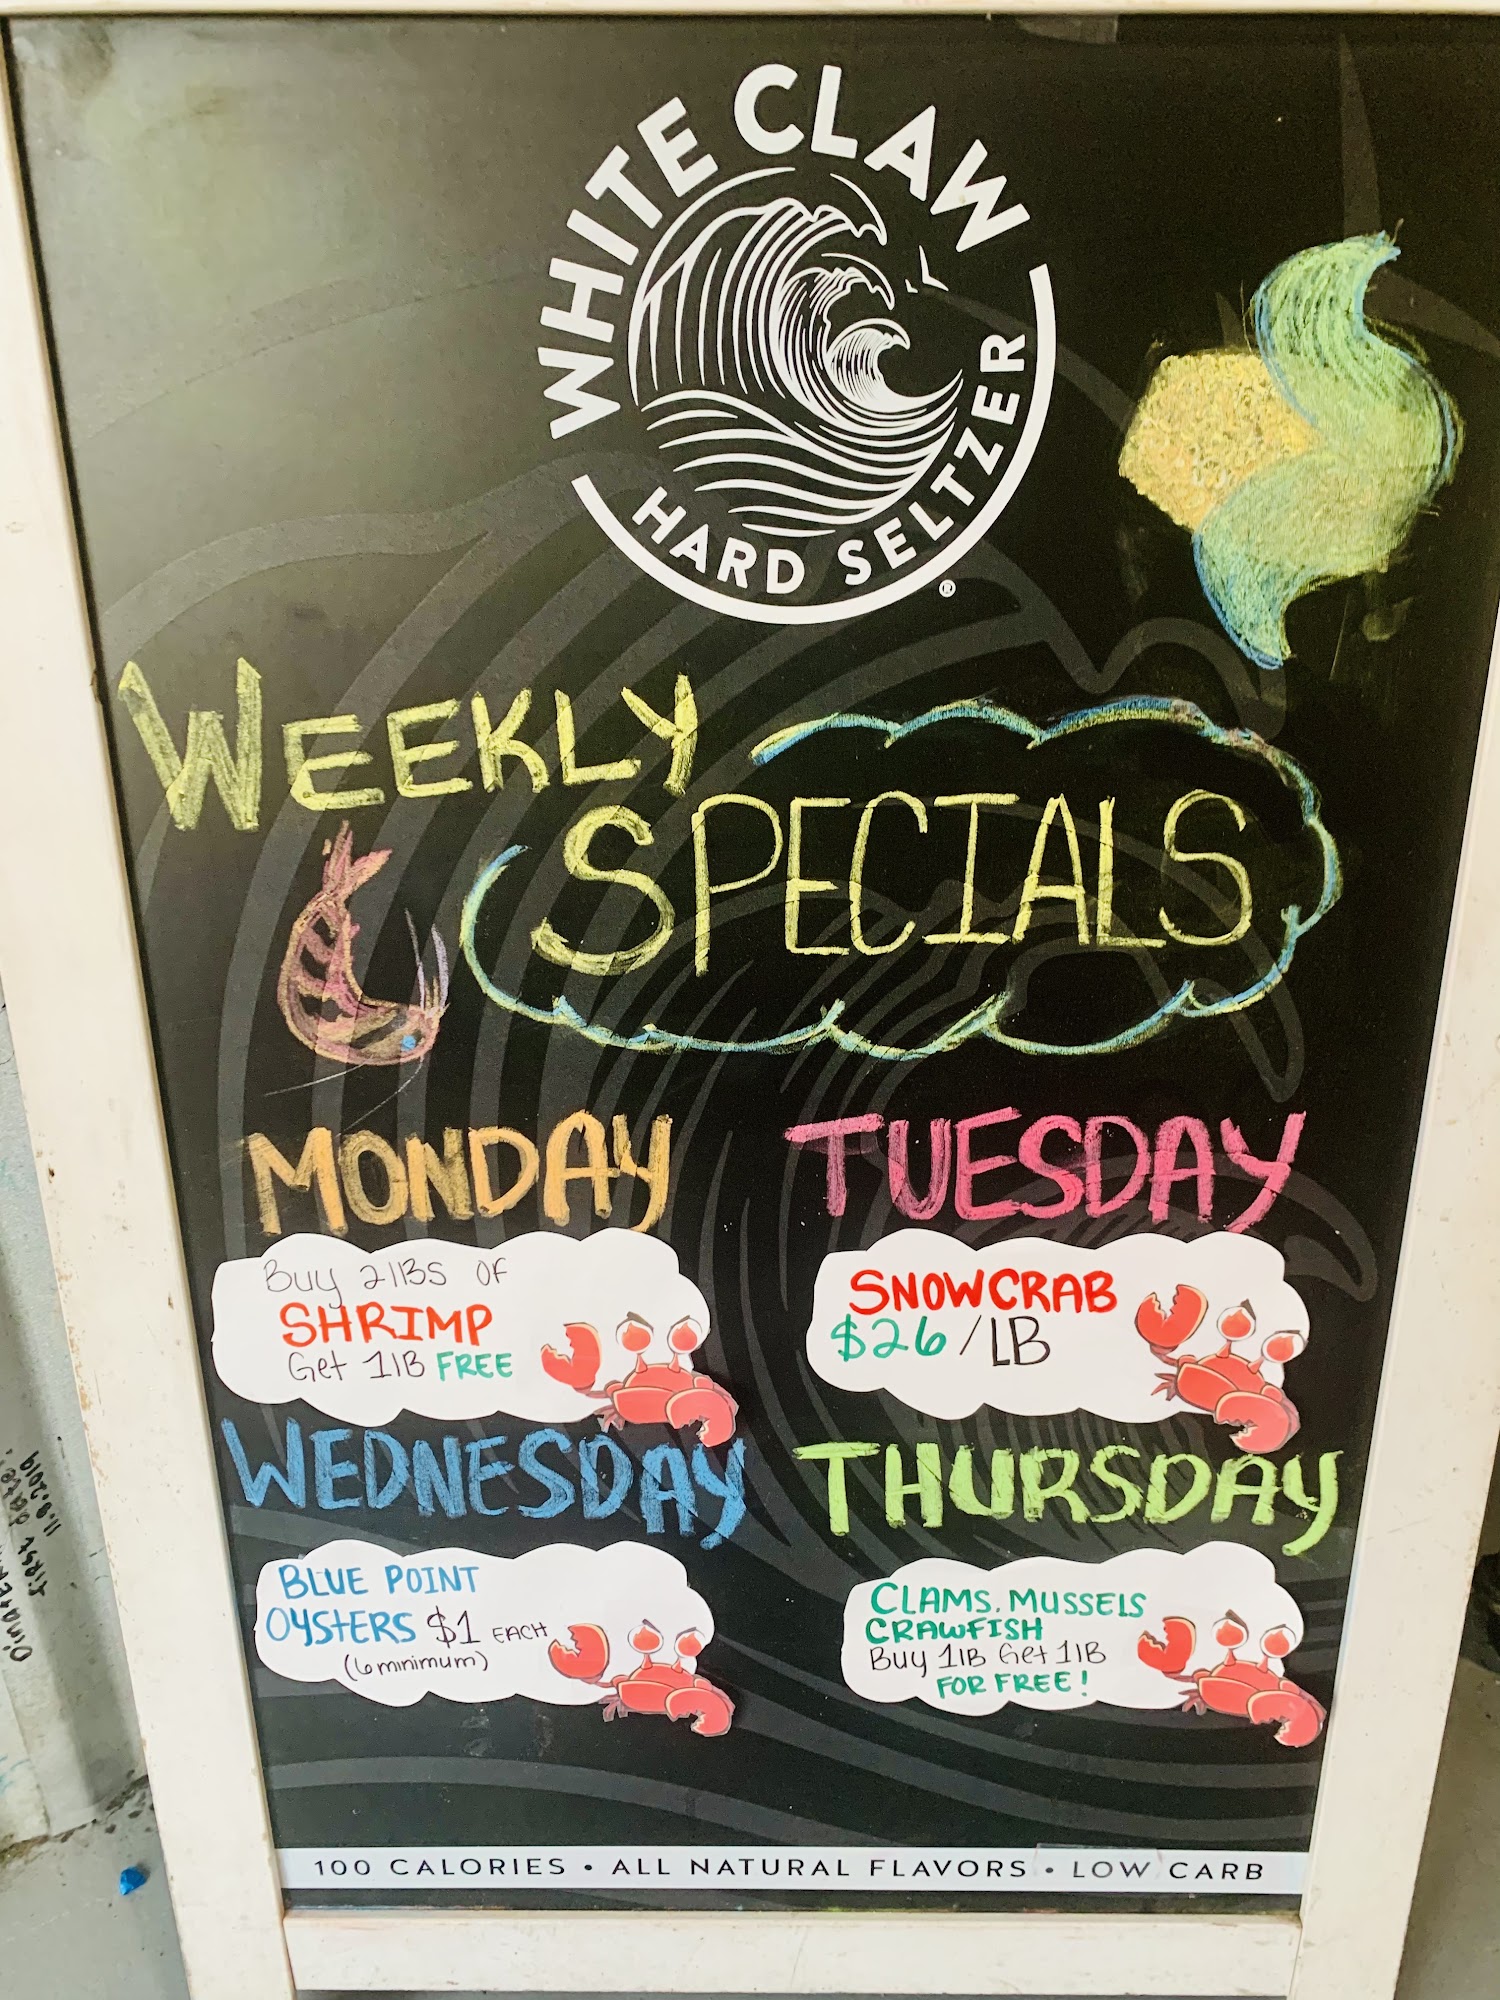 WHITE CLAW
HARD SELTZER
®
WEEKLY
SPECIALS
MONDAY
Buy 2 lBS OF
SHRIMP
Get 1lB FREE
TUESDAY
SNOWCRAB
$26/LB
WEDNESDAY
BLUE POINT
OYSTERS $1 EACH
(6 minimum)
THURSDAY
CLAMS, MUSSELS
CRAWFISH
Buy 1lB Get 1lB
FOR FREE!
100 CALORIES • ALL NATURAL FLAVORS • LOW CARB
11.8.2019